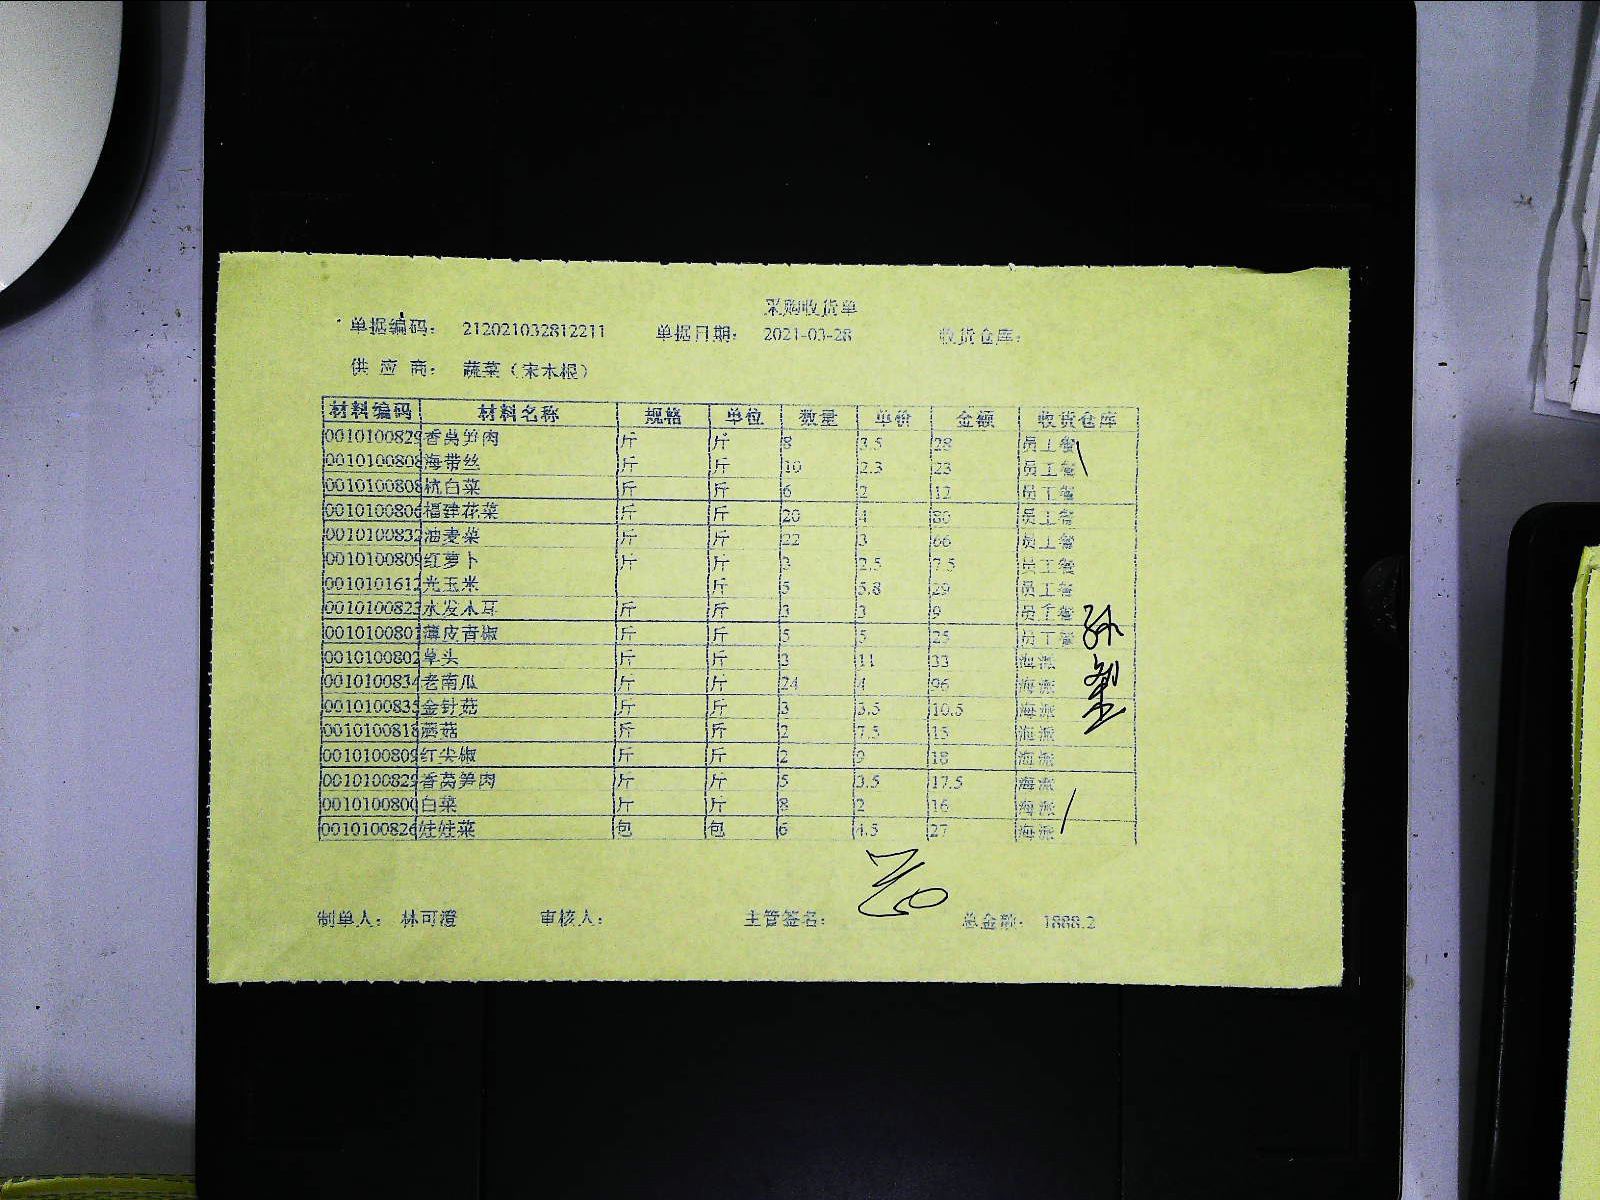 采购收货单
单据编码： 212021032812211 单据日期： 2021-03-28 收货仓库：
供 应 商： 蔬菜（宋木根）
材料编码 材料名称 规格 单位 数量 单价 金额 收货仓库
0010100829 香莴笋肉 斤 斤 8 3.5 28 员工餐
0010100808 海带丝 斤 斤 10 2.3 23 员工餐
0010100808 杭白菜 斤 斤 6 2 12 员工餐
0010100806 福建花菜 斤 斤 20 4 80 员工餐
0010100832 油麦菜 斤 斤 22 3 66 员工餐
0010100809 红萝卜 斤 斤 3 2.5 7.5 员工餐
0010101612 光玉米 斤 5 5.8 29 员工餐
0010100823 水发木耳 斤 斤 3 3 9 员工餐
0010100801 薄皮青椒 斤 斤 5 5 25 员工餐
0010100802 草头 斤 斤 3 11 33 海派
0010100834 老南瓜 斤 斤 24 4 96 海派
0010100835 金针菇 斤 斤 3 3.5 10.5 海派
0010100818 蘑菇 斤 斤 2 7.5 15 海派
0010100809 红尖椒 斤 斤 2 9 18 海派
0010100829 香莴笋肉 斤 斤 5 3.5 17.5 海派
0010100800 白菜 斤 斤 8 2 16 海派
0010100826 娃娃菜 包 包 6 4.5 27 海派
制单人： 林可澄 审核人： 主管签名： 总金额： 1888.2